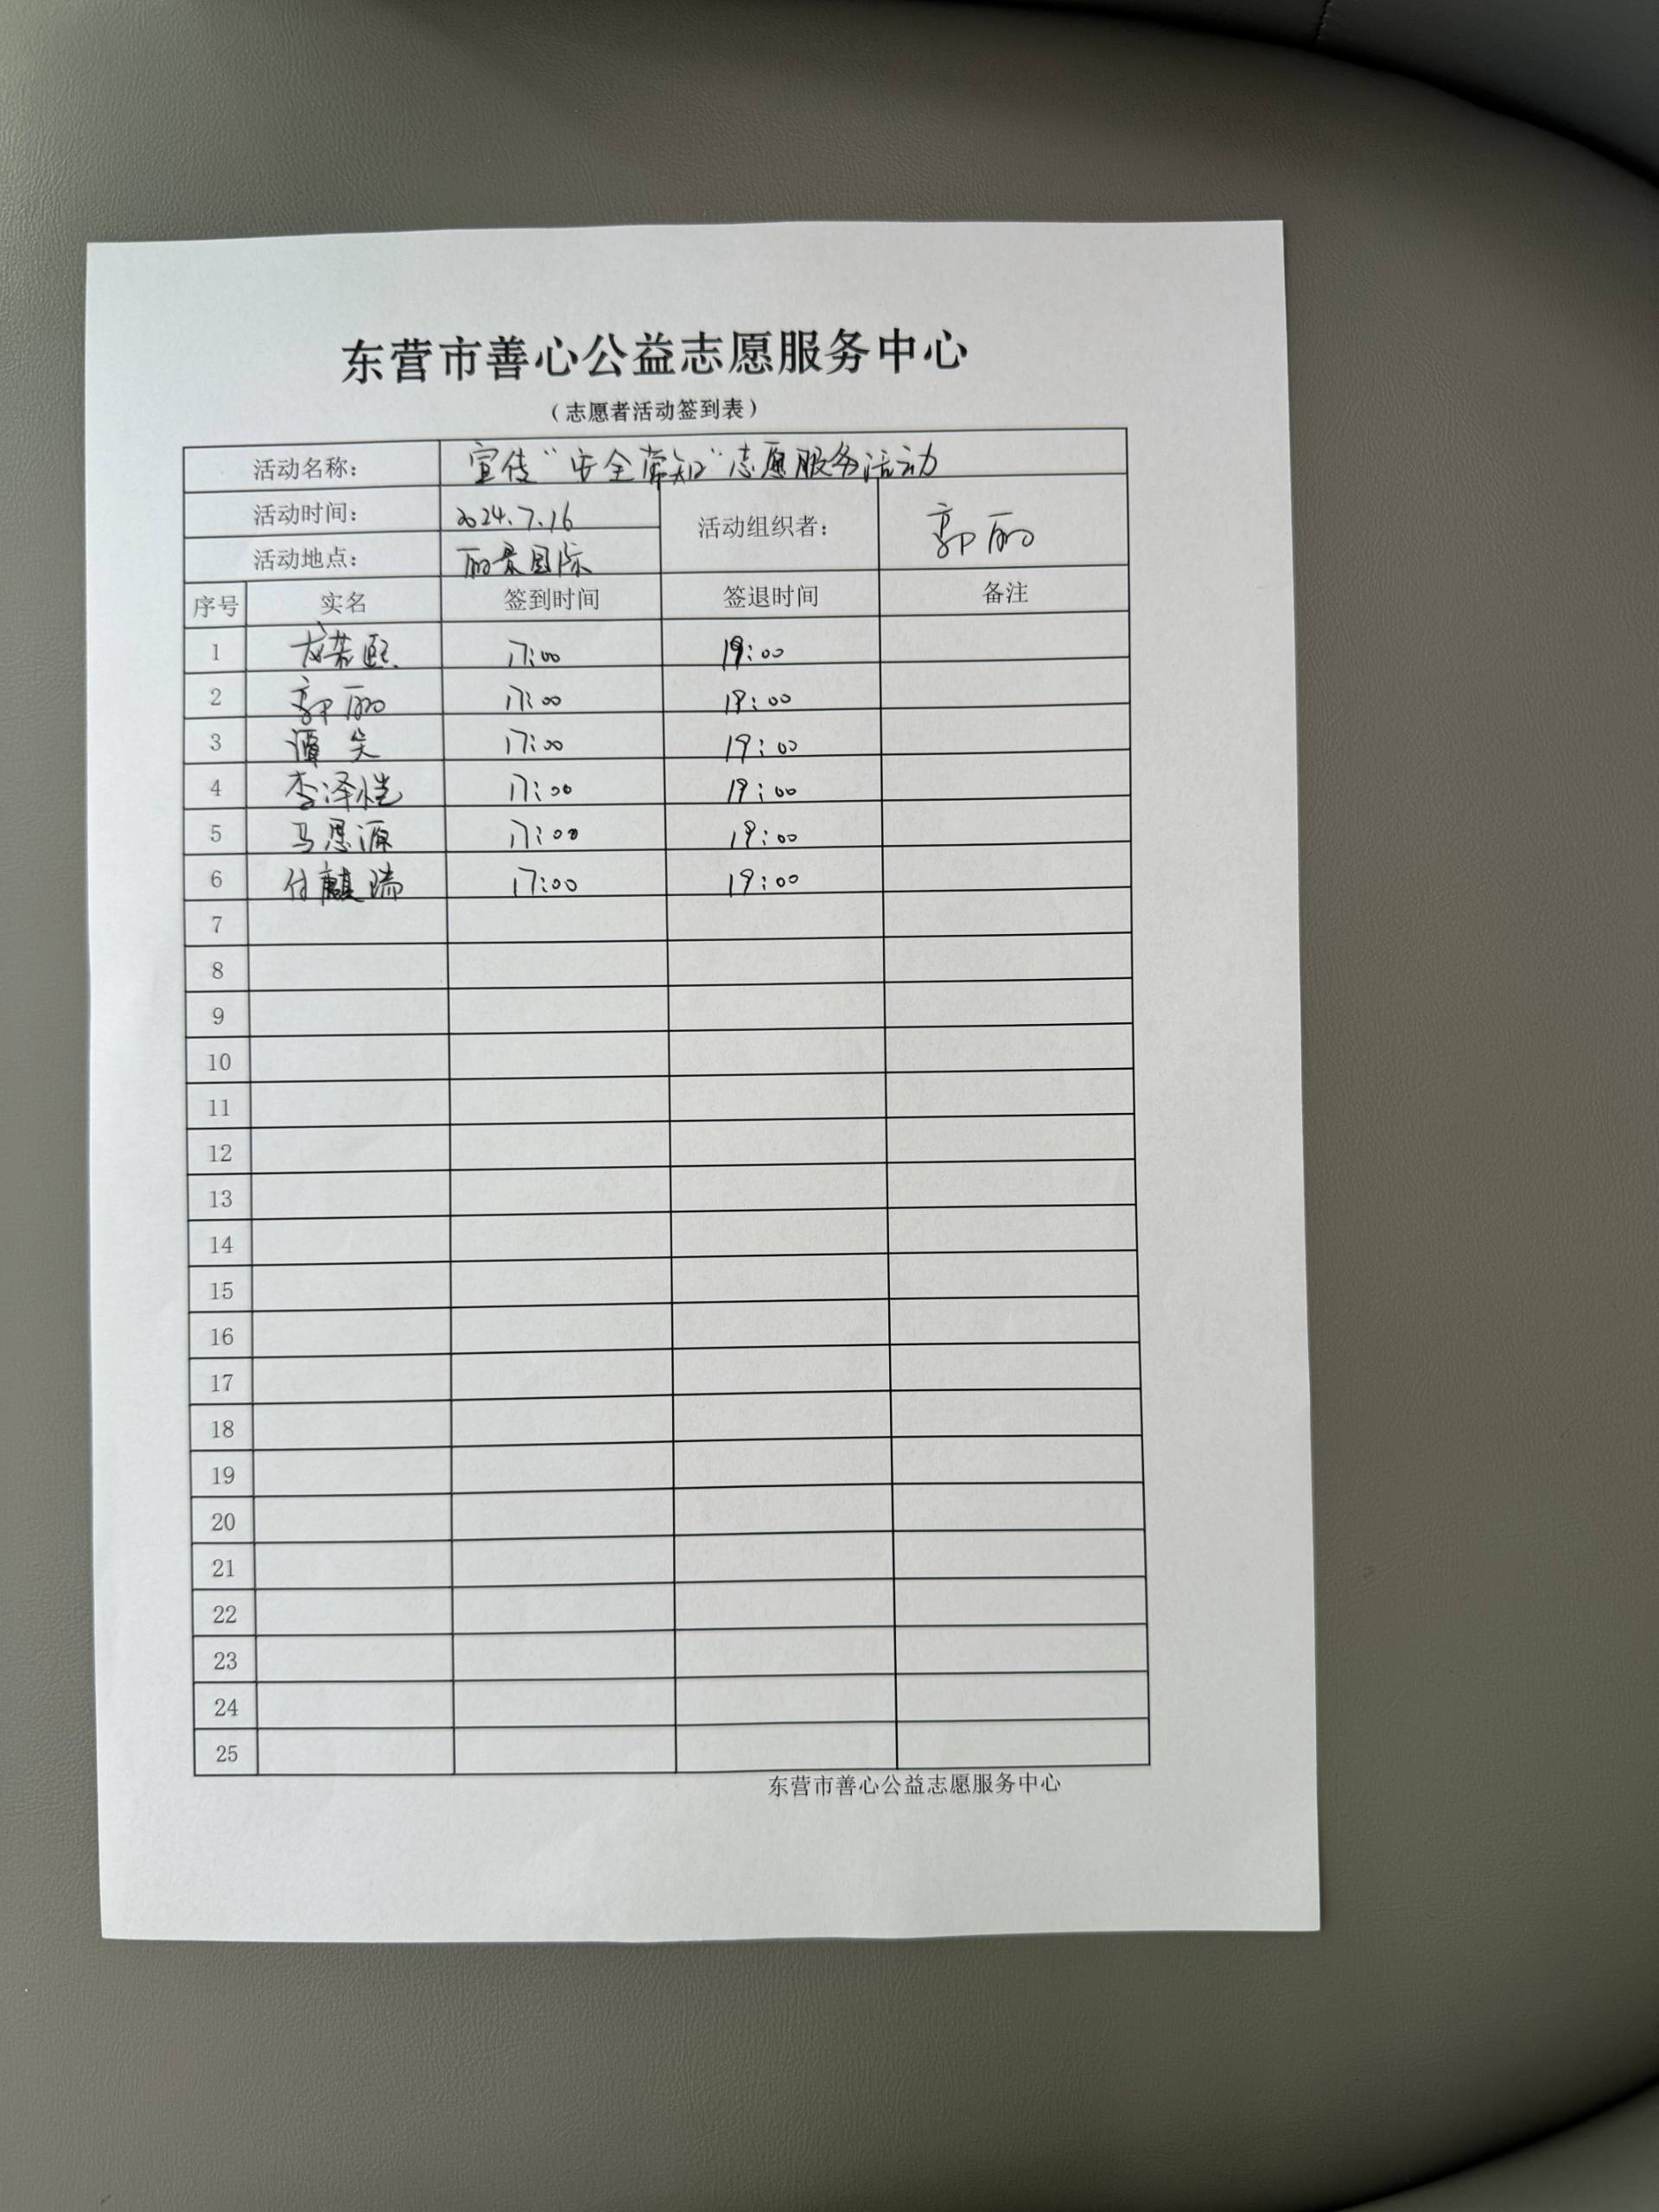 东营市善心公益志愿服务中心
（志愿者活动签到表）
活动名称： 宣传“安全常知”志愿服务活动
活动时间： 2024.7.16 活动组织者： 郭丽
活动地点： 丽景国际
序号 实名 签到时间 签退时间 备注
1 若熙 17:00 19:00
2 郭丽 17:00 19:00
3 17:00 19:00
4 李泽恺 17:00 19:00
5 马思源 17:00 19:00
6 付麒瑞 17:00 19:00
7
8
9
10
11
12
13
14
15
16
17
18
19
20
21
22
23
24
25
东营市善心公益志愿服务中心